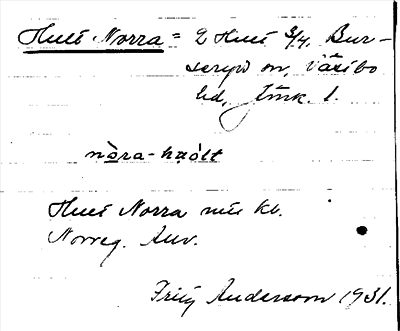 Hult Norra = 2 Hult 3/4, Bur-
seryd sn, Västbo
hd, Jönk. l.
nòra-hʊólt
Hult Norra
Norreg.
Fritz Andersson 1931.